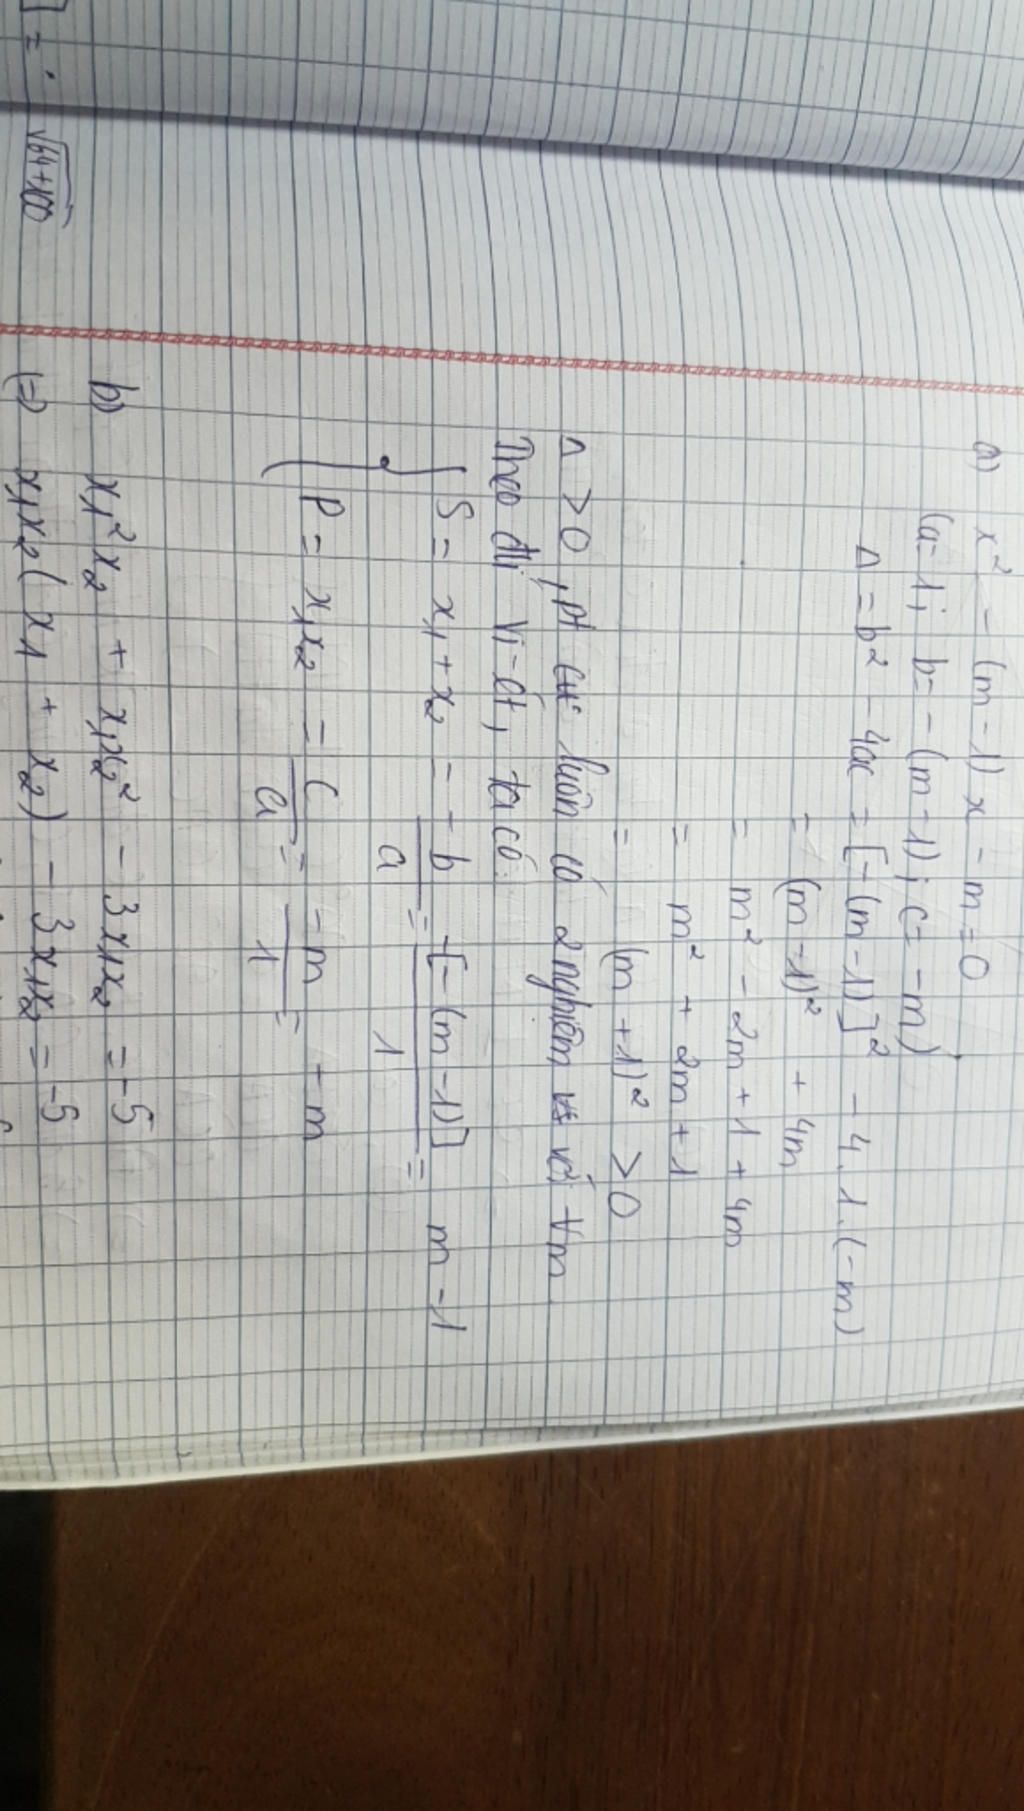 a) x² - (m-1)x - m = 0
(a=1; b= -(m-1); c= -m)
Δ = b² - 4ac = [-(m-1)]² - 4.1.(-m)
= (m-1)² + 4m
= m² - 2m + 1 + 4m
= m² + 2m + 1
= (m+1)² > 0
Δ > 0, pt luôn có 2 nghiệm với ∀m
Theo đlí Vi-ét, ta có:
{ S = x₁ + x₂ = -b/a = -[-(m-1)]/1 = m-1
P = x₁x₂ = c/a = -m/1 = -m
b) x₁²x₂ + x₁x₂² - 3x₁x₂ = -5
(=) x₁x₂(x₁ + x₂) - 3x₁x₂ = -5
√64+100